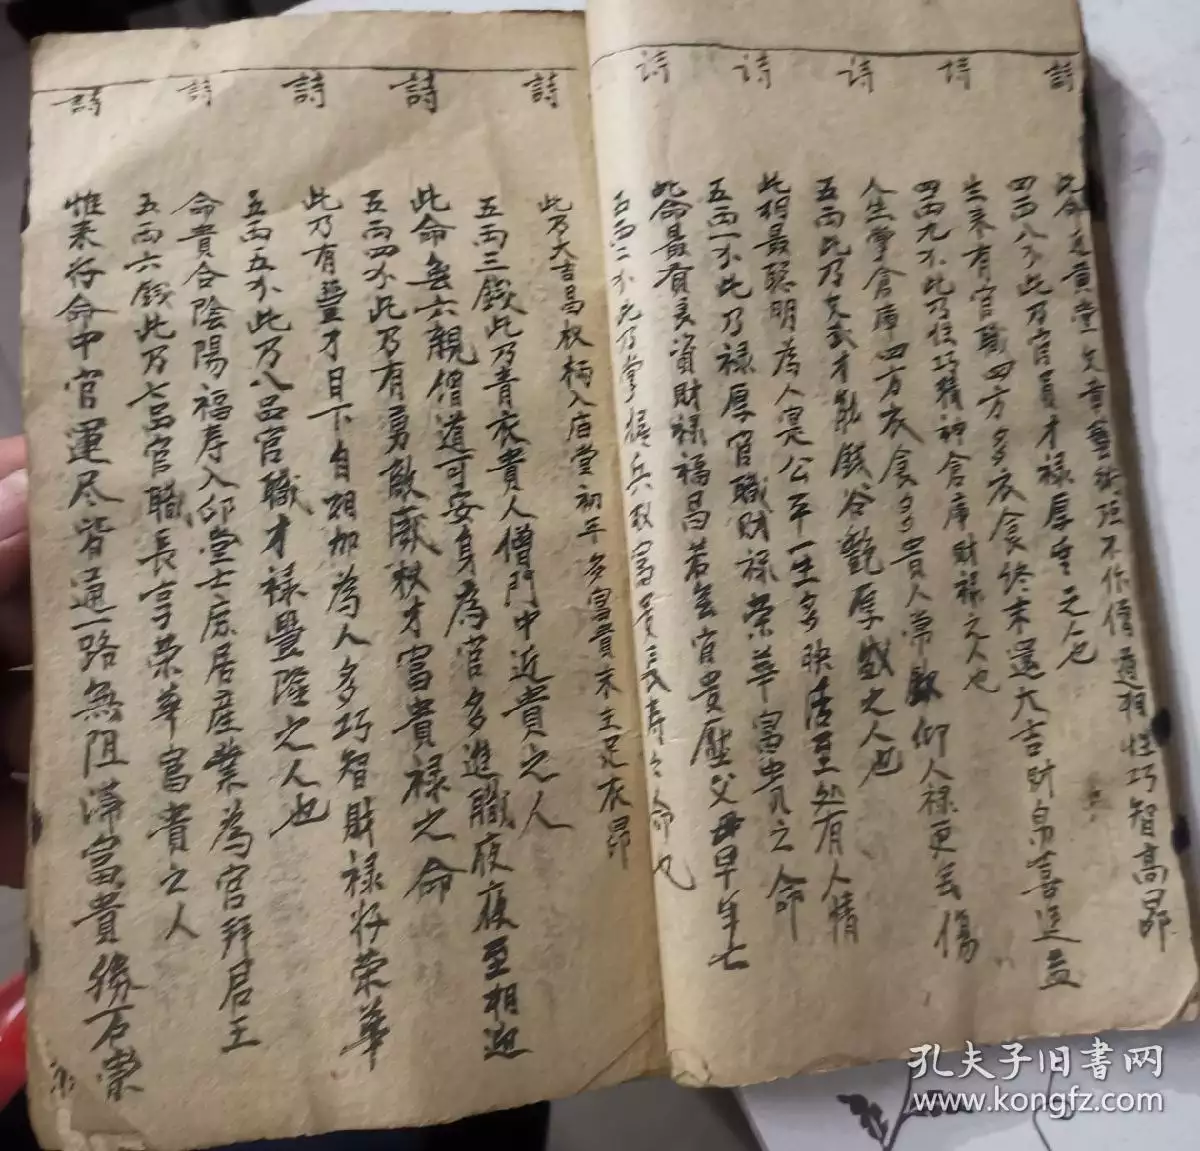 詩
此命 黃堂文章藝術強不作僧道相性巧智高昂
四兩八分此乃官員才祿厚重之人也
詩
生来有官職四方多衣食終末還大吉財帛喜進益
四兩九分此乃性巧精神倉庫財祿之人也
詩
人生掌倉庫四方衣食多貴人常歡仰人禄更無傷
五兩此乃文武才能錢谷艷厚盛之人也
詩
此相最聪明為人寔公平一生多映活至处有人情
五兩一分此乃禄厚官職財禄荣華富貴之命
诗
此命最有良資財禄福昌若無官貴壓父母早年亡
五兩二分此乃掌握兵权富貴 壽之命也
詩
此乃大吉昌权柄入庙堂初年多富貴末主足衣昂
五兩三錢此乃青衣貴人僧門中近貴之人
詩
此命無六親僧道可安身為官多進職夜夜至相迎
五兩四分此乃有勇敵厰权才富貴禄之命
詩
此乃有豐才目下自相加為人多巧智財禄将荣華
五兩五分此乃八品官職才禄豐隆之人也
詩
命貴合陰陽福寿入邱堂士 居産業為官拜君王
五兩六錢此乃七品官職長享荣華富貴之人
詩
惟来好命中官運尽皆通一路無阻滞富貴勝石崇
孔夫子旧书网
www.kongfz.com